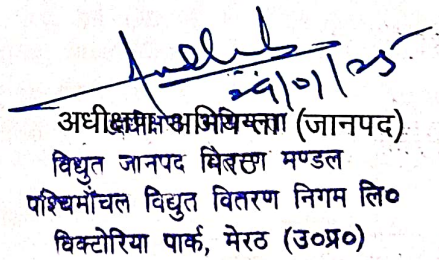 24/01/25
अधीक्षण अभियन्ता (जानपद)
विद्युत जानपद वितरण मण्डल
पश्चिमाँचल विद्युत वितरण निगम लि०
विक्टोरिया पार्क, मेरठ (उ०प्र०)